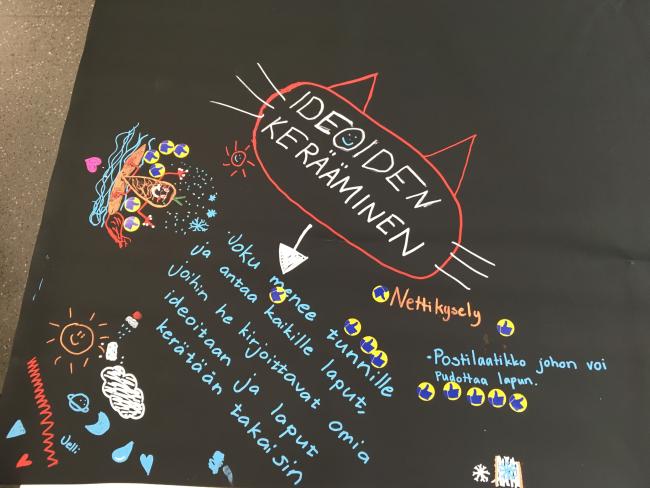 IDEOIDEN
KERÄÄMINEN
Joku menee tunnille
ja antaa kaikille laput,
joihin he kirjoittavat omia
ideoitaan ja laput
kerätään takaisin
Nettikysely
-Postilaatikko johon voi
Pudottaa lapun.